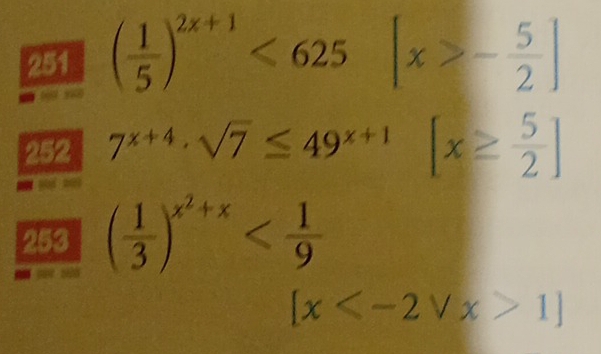 251 (1/5)^{2x+1} < 625 [x > -5/2]
252 7^{x+4} · √7 ≤ 49^{x+1} [x ≥ 5/2]
253 (1/3)^{x²+x} < 1/9
[x < -2 ∨ x > 1]